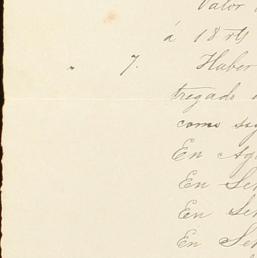 Valor
á 18
" 7. Haber
tregado
como
En Ag
En Se
En Se
En Se